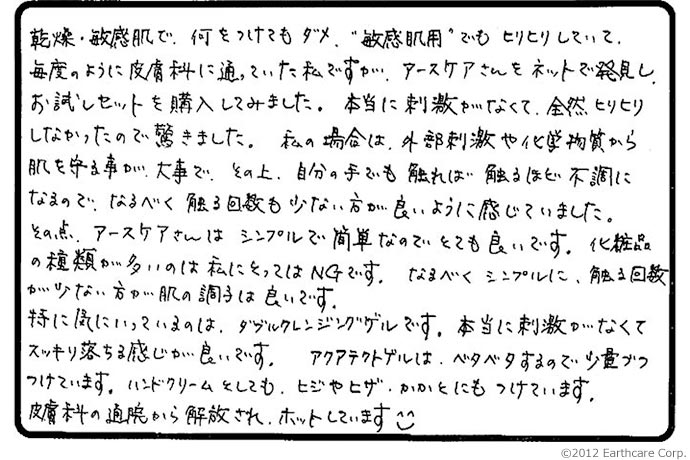 乾燥・敏感肌で、何をつけてもダメ、"敏感肌用"でもヒリヒリしていて、
毎度のように皮膚科に通っていた私ですが、アースケアさんをネットで発見し、
お試しセットを購入してみました。 本当に刺激がなくて、全然ヒリヒリ
しなかったので驚きました。 私の場合は、外部刺激や化学物質から
肌を守る事が、大事で、その上、自分の手でも触れば触るほど不調に
なるので、なるべく触る回数も少ない方が良いように感じていました。
その点、アースケアさんはシンプルで簡単なのでとても良いです。 化粧品
の種類が多いのは私にとってはNGです。 なるべくシンプルに、触る回数
が少ない方が肌の調子は良いです。
特に気にいっているのは、ダブルクレンジングゲルです。本当に刺激がなくて
スッキリ落ちる感じが良いです。 アクアテクトゲルは、ベタベタするので少量づつ
つけています。ハンドクリームとしても、ヒジやヒザ・かかとにもつけています。
皮膚科の通院から解放され、ホットしています
©2012 Earthcare Corp.